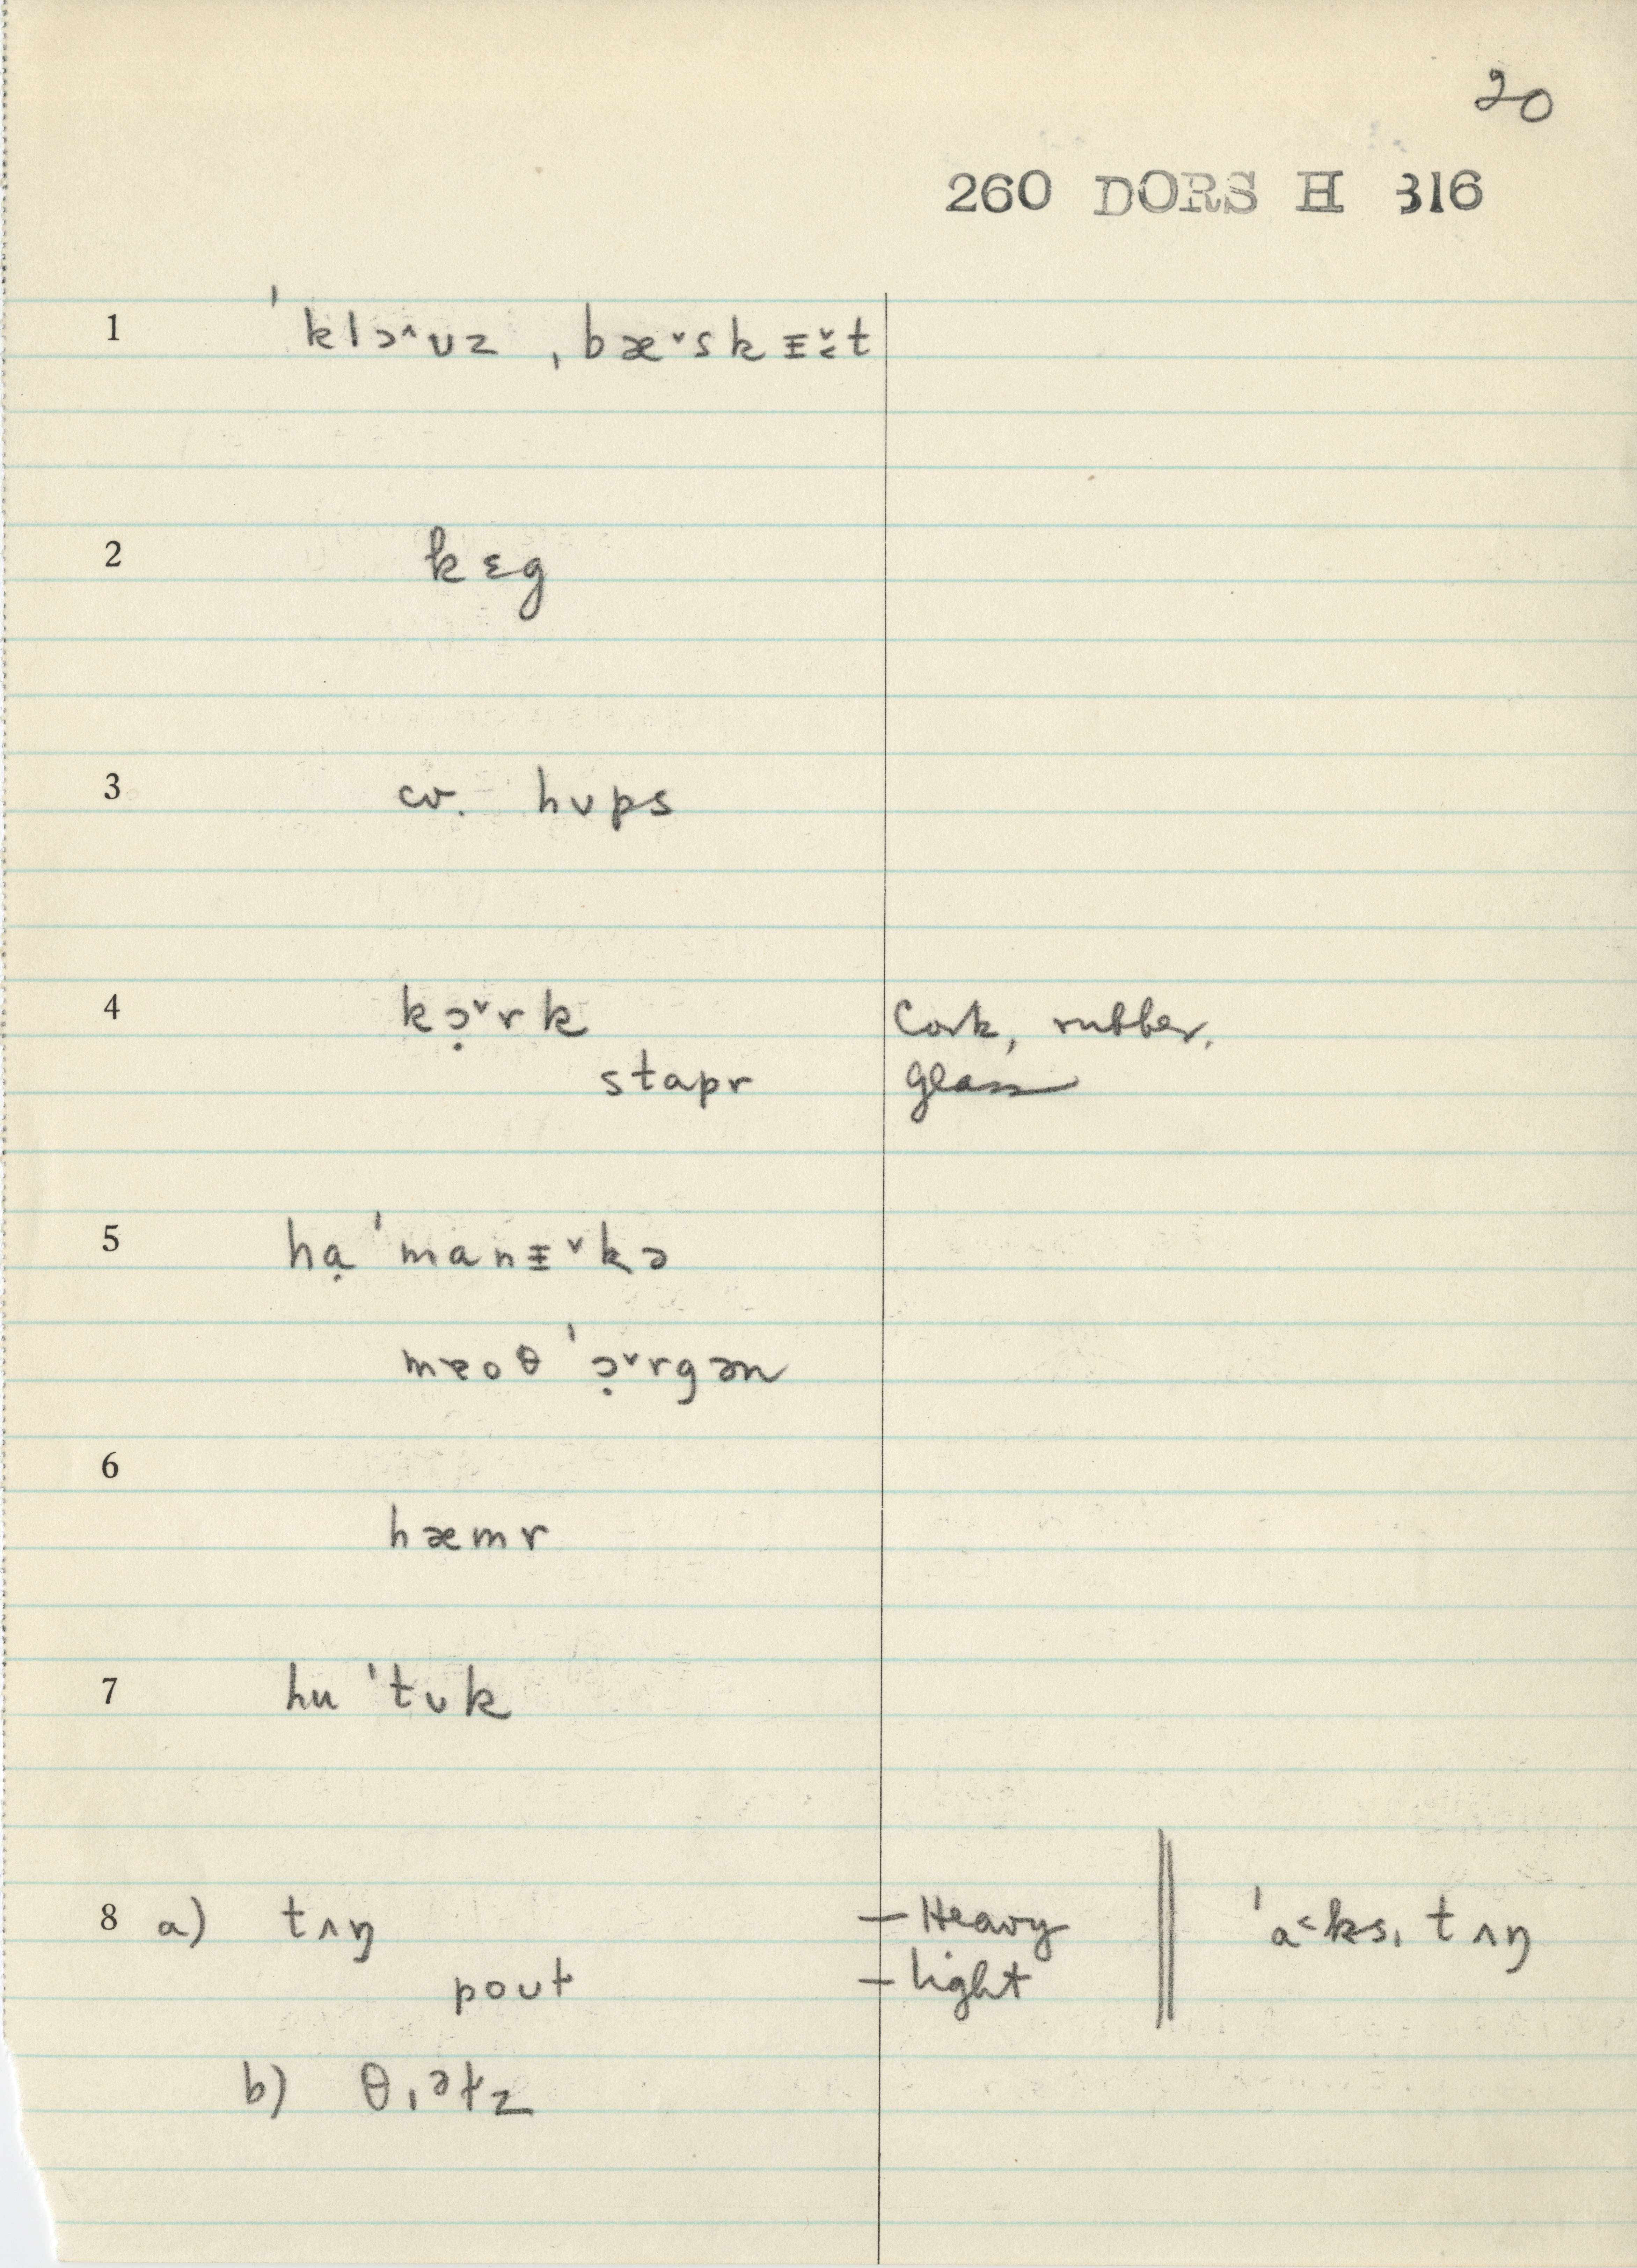 20
260 DORS H 316
1 ˈklɔ^ʊz ˌbæˇskɪ̵ˇt
2 kɛg
3 cv. hʊps
4 kɔ̣ˇrk Cork, rubber,
stapr glass
5 hɑ̣ˈmanɪ̵ˇkə
θ ˈɔ̣ˇrgən
6
hæmr
7 huˈtʊk
8 a) tʌŋ – Heavy ˈa˂ksˌtʌŋ
poʊt – Light
b)